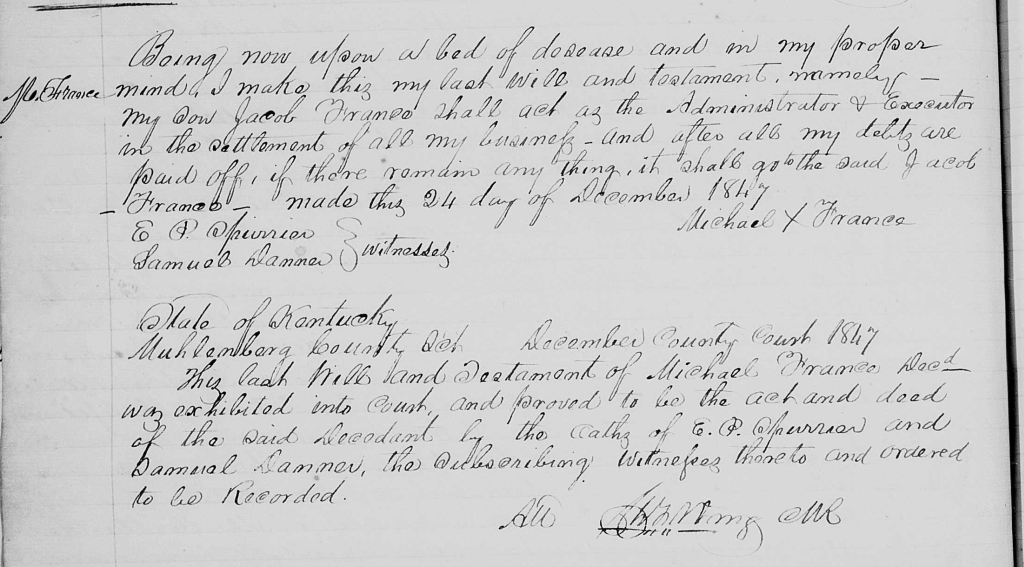 Being now upon a bed of desease and in my proper
M. France mind, I make this my last will and testament, namely, -
my son Jacob France shall act as the Administrator & Executor
in the settlement of all my business - and after all my debts are
paid off, if there remain any thing, it shall go to the said Jacob
- France - made this 24 day of December 1847
Michael X France
E P. Spurrier
Samuel Danner } witnesses.
State of Kentucky
Muhlenberg County Sct December County Court 1847
This last Will and Testament of Michael France Decd
was exhibited into Court, and proved to be the act and deed
of the said Decedant by the oaths of E. P. Spurrier and
Samuel Danner, the subscribing witnesses thereto and ordered
to be Recorded.
Att Wing